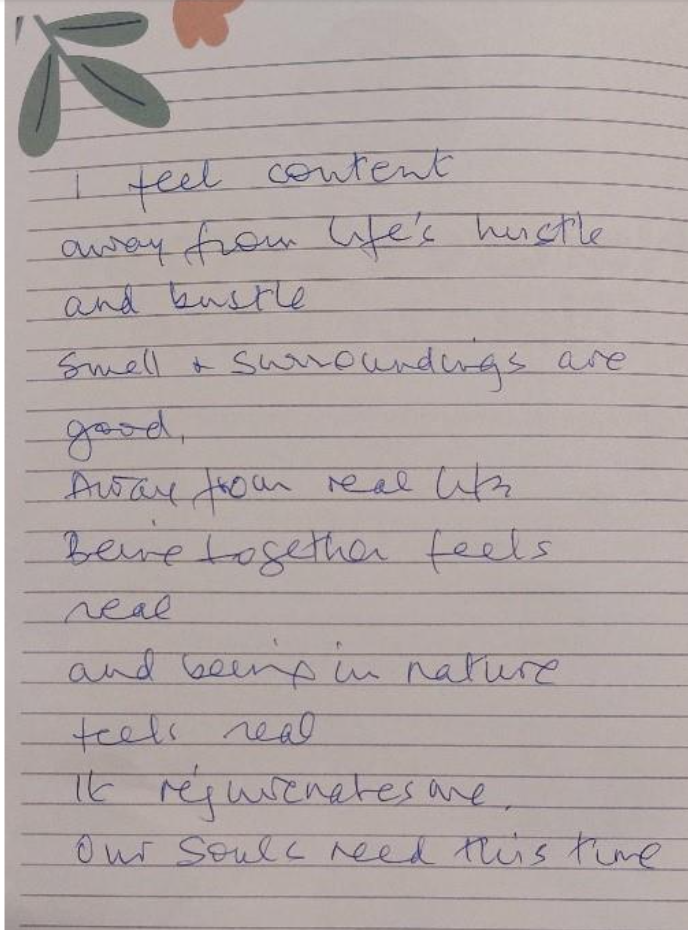 I feel content
away from life's hustle
and bustle
Smell & surroundings are
good,
Away from real life
Being together feels
real
and being in nature
feels real
It rejuvenates me.
Our Souls need this time